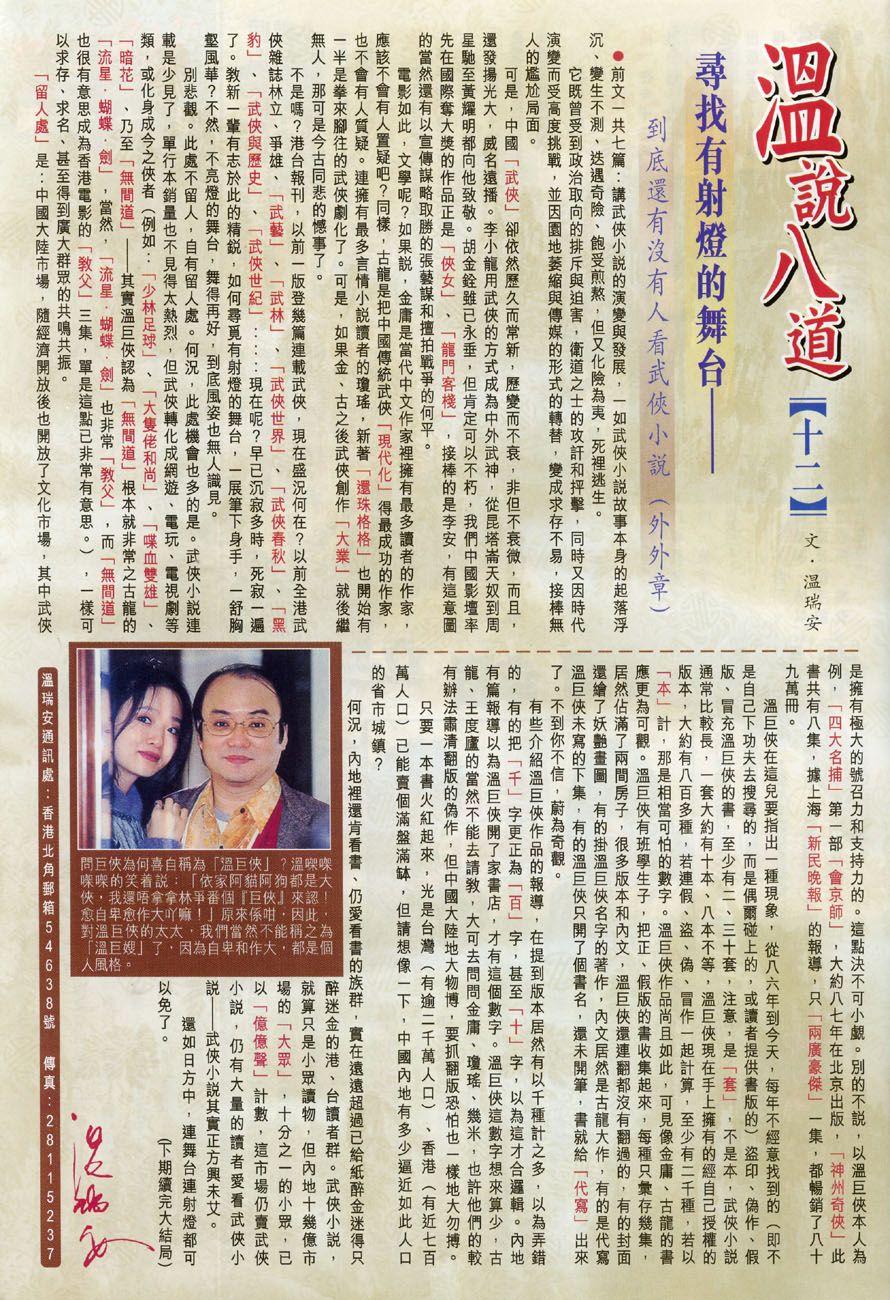 溫說八道【十二】
文·溫瑞安
尋找有射燈的舞台——
到底還有沒有人看武俠小說（外外章）
●前文一共七篇：講武俠小說的演變與發展，一如武俠小說故事本身的起落浮
沉、變生不測、迭遇奇險、飽受煎熬，但又化險為夷，死裡逃生。
它既曾受到政治取向的排斥與迫害，衛道之士的攻訐和抨擊，同時又因時代
演變而受高度挑戰，並因園地萎縮與傳媒的形式的轉替，變成求存不易，接棒無
人的尷尬局面。
可是，中國「武俠」卻依然歷久而常新，歷變而不衰，非但不衰微，而且，
還發揚光大，威名遠播。李小龍用武俠的方式成為中外武神，從昆塔崙天奴到周
星馳至黃耀明都向他致敬。胡金銓雖已永垂，但肯定可以不朽，我們中國影壇率
先在國際奪大獎的作品正是「俠女」、「龍門客棧」，接棒的是李安，有這意圖
的當然還有以宣傳謀略取勝的張藝謀和擅拍戰爭的何平。
電影如此，文學呢？如果說，金庸是當代中文作家裡擁有最多讀者的作家，
應該不會有人置疑吧？同樣，古龍是把中國傳統武俠「現代化」得最成功的作家，
也不會有人質疑。連擁有最多言情小說讀者的瓊瑤，新著「還珠格格」也開始有
一半是拳來腳往的武俠劇化了。可是，如果金、古之後武俠創作「大業」就後繼
無人，那可是今古同悲的憾事了。
不是嗎？港台報刊，以前一版登幾篇連載武俠，現在盛況何在？以前全港武
俠雜誌林立、爭雄，「武藝」、「武林」、「武俠世界」、「武俠春秋」、「黑
豹」、「武俠與歷史」、「武俠世紀」：：：現在呢？早已沉寂多時，死寂一遍
了。教新一輩有志於此的精銳，如何尋覓有射燈的舞台，一展筆下身手，一舒胸
壑風華？不然，不亮燈的舞台，舞得再好，到底風姿也無人識見。
別悲觀。此處不留人，自有留人處。何況，此處機會也多的是。武俠小說連
載是少見了，單行本銷量也不見得太熱烈，但武俠轉化成網遊、電玩、電視劇等
類，或化身成今之俠者（例如：「少林足球」、「大隻佬和尚」、「喋血雙雄」、
「暗花」、乃至「無間道」——其實溫巨俠認為「無間道」根本就非常之古龍的
「流星·蝴蝶·劍」，當然，「流星·蝴蝶 劍」也非常「教父」，而「無間道」
也很有意思成為香港電影的「教父」三集，單是這點已非常有意思。），一樣可
以求存、求名、甚至得到廣大群眾的共鳴共振。
「留人處」是：中國大陸市場，隨經濟開放後也開放了文化市場，其中武俠
是擁有極大的號召力和支持力的。這點決不可小覷。別的不說，以溫巨俠本人為
例，「四大名捕」第一部「會京師」，大約八七年在北京出版，「神州奇俠」此
書共有八集，據上海「新民晚報」的報導，只「兩廣豪傑」一集，都暢銷了八十
九萬冊。
溫巨俠在這兒要指出一種現象，從八六年到今天，每年不經意找到的（即不
是自己下功夫去搜尋的，而是偶爾碰上的，或讀者提供書版的）盜印、偽作、假
版、冒充溫巨俠的書，至少有二、三十套，注意，是「套」，不是本，武俠小說
通常比較長，一套大約有十本、八本不等，溫巨俠現在手上擁有的經自己授權的
版本，大約有八百多種，若連假、盜、偽、冒作一起計算，至少有二千種，若以
「本」計，那是相當可怕的數字。溫巨俠作品尚且如此，可見像金庸、古龍的書
應更為可觀。溫巨俠有班學生子，把正、假版的書收集起來，每種只彙存幾集，
居然佔滿了兩間房子，很多版本和內文，溫巨俠還連翻都沒有翻過的，有的封面
還繪了妖艷畫圖，有的掛溫巨俠名字的著作，內文居然是古龍大作，有的是代寫
溫巨俠未寫的下集，有的溫巨俠只開了個書名，還未開筆，書就給「代寫」出來
了。不到你不信，蔚為奇觀。
有些介紹溫巨俠作品的報導，在提到版本居然有以千種計之多，以為弄錯
的，有的把「千」字更正為「百」字，甚至「十」字，以為這才合邏輯。內地
有篇報導以為溫巨俠開了家書店，才有這個數字。溫巨俠這數字想來算少，古
龍、王度廬的當然不能去請教，大可去問問金庸、瓊瑤、幾米，也許他們的較
有辦法肅清翻版的偽作，但中國大陸地大物博，要抓翻版恐怕也一樣地大勿搏。
只要一本書火紅起來，光是台灣（有逾二千萬人口）、香港（有近七百
萬人口）已能賣個滿盤滿缽，但請想像一下，中國內地有多少逼近如此人口
的省市城鎮？
何況，內地裡還肯看書、仍愛看書的族群，實在遠遠超過已給紙醉金迷得只
醉迷金的港、台讀者群。武俠小說，
就算只是小眾讀物，但內地十幾億市
場的「大眾」，十分之一的小眾，已
以「億億聲」計數，這市場仍賣武俠
小說，仍有大量的讀者愛看武俠小
說——武俠小說其實正方興未艾。
還如日方中，連舞台連射燈都可
以免了。
（下期續完大結局）
問巨俠為何喜自稱為「溫巨俠」？溫㗎㗎
㗎㗎的笑着說：「依家阿貓阿狗都是大
俠，我還唔拿拿林爭番個『巨俠』來認！
愈自卑愈作大吖嘛！」原來係咁，因此，
對溫巨俠的太太，我們當然不能稱之為
「溫巨嫂」了，因為自卑和作大，都是個
人風格。
溫瑞安通訊處：香港北角郵箱54638號 傳真：28115237
溫瑞安